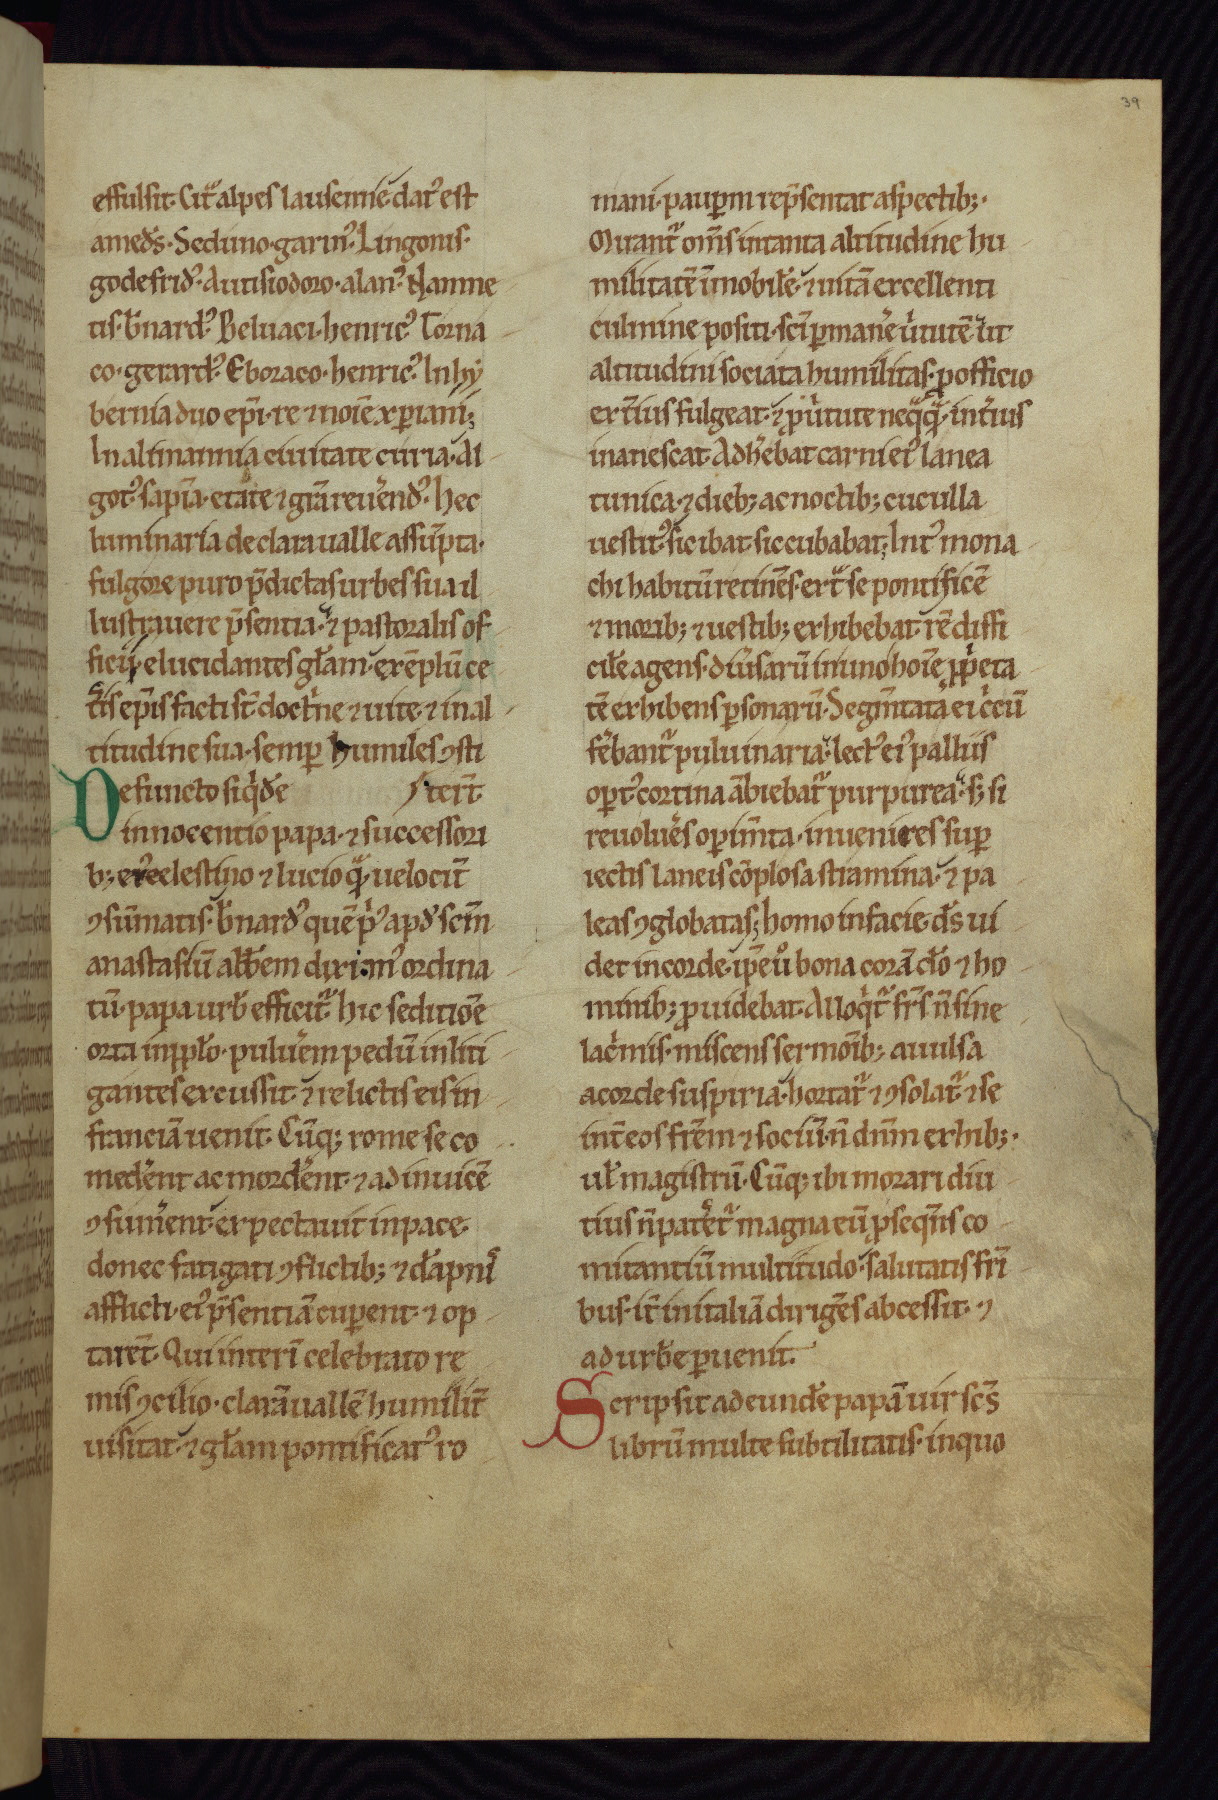 39
effulsit. Cit̾ alpes lausenne dat᷒ est
amed̾s. Seduno. garin᷒. Lingonis.
godefrid᷒. Autisiodoro. alan᷒. Namne
tis. b̾nard᷒. Beluaci. henric᷒. Torna
co. gerard᷒. Eboraco. henric᷒. In hy
bernia duo ep̄i. re ⁊ noīe xp̄iani;
In alimannia ciuitate curia. Al
got᷒. sap̄ia. etate ⁊ gr̄a reu̾end᷒. hec
luminaria de clara ualle assūpta.
fulgore puro p̄dictas urbes sua il
lustrauere p̄sentia. ⁊ pastoralis of
ficii. elucidantes gl̄am. exēplū ce
t̾is ep̄is facti st̄. doct̾ne ⁊ uite. ⁊ in al
titudine sua. semp̲ humiles ꝯsti
Defuncto siq̾de terт̄
innocentio papa. ⁊ successori
b; ei᷒ celestino ⁊ lucio q̄. uelocit̄
ꝯsūmatis. b̄nard᷒ quē p̾᷒ apd̾ scm̄
anastasiū abb̄em dixim᷒ ordina
tū. papa urb̄ efficit᷑. hic seditiōe
orta in pp̄lo. puluēm pedū in liti
gantes excussit. ⁊ relictis eis in
franciā uenit. Cūq; rome se co
med̾ent ac mord̾ent. ⁊ ad inuicē
ꝯsum̾ent. expectauit in pace.
donec fatigati ꝯflictib; ⁊ dāpnis
afflicti. ei᷒ p̄sentiā cup̲ent. ⁊ op
tarēt. Qui interī celebrato re
mis ꝯcilio. clarāuallē humilit̄
uisitat. ⁊ gl̄am pontificat᷒ ro
mani. paup̲um rep̄sentat aspectib;.
Mirant᷑ om̄s in tanta altitudine hu
militatē īmobilē. ⁊ in tā excellenti
culmine positi. sc̄i p̲manē ut̾utē. ut
altitudini sociata humilitas. ꝓ officio
ext̾ius fulgeat. ⁊ ꝓ uirtute neq̄q̄. int̾ius
inanescat. Adh̾ebat carni ei᷒ lanea
tunica. ⁊ dieb; ac noctib; cuculla
uestit᷒. sic ibat. sic cubabat; Int᷒ mona
chi habitū retinēs. ext̾ se pontificē
⁊ morib; ⁊ uestib; exhibebat. rē diffi
cilē agens. diu̾sarū in uno hoīe ꝓp̾eta
tē exhibens p̲sonarū. Segm̄tata ei c̾cū
f̾ebant᷑ puluinaria. lect᷒ ei᷒ palliis
op̲t᷒. cortina ābiebat᷑ purpurea. s; si
reuolu̾es op̲im̄ta. inuenires sup̲
iectis laneis cōplosa stramina. ⁊ pa
leas ꝯglobatas; homo in facie. ds̄ ui
det in corde. ip̄e u̾o bona corā d̄o ⁊ ho
minib; ꝓuidebat. Alloq̾t᷑ fr̄s n̄ sine
lac̾mis. miscens sermōib; auulsa
a corde suspiria. hortat᷑ ⁊ ꝯsolat᷑. ⁊ se
int̄ eos fr̄em ⁊ sociū. n̄ dn̄m exhib;.
ul̄ magistrū. Cūq; ibi morari diu
tius n̄ patet̾et᷑ magna eū ꝓseq̄ntis co
mitantiū multitudo. salutatis fr̄i
bus. it̄ in italiā dirigēs abcessit. ⁊
ad urbē p̲uenit.
Scripsit ad eundē papā uir sc̄s
librū multe subtilitatis. in quo